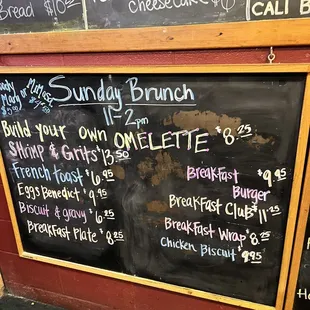 Bread $10
cheesecake
CALI B
Bloody Mary or Mimosa
Sunday Brunch
11-2pm
Build your own OMELETTE $8.25
Shrimp & Grits 13.50
French Toast $6.95
Eggs Benedict $9.95
Biscuit & gravy $6.25
Breakfast Plate $8.25
Breakfast Burger $9.95
Breakfast Club $11.25
Breakfast Wrap $8.25
Chicken Biscuit $9.95